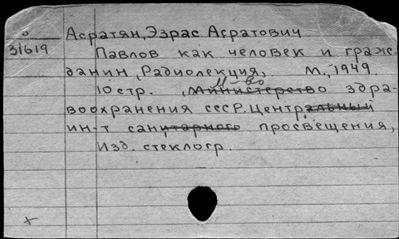 о
31619
Асратян, Эзрас Асратович
Павлов как человек и граж-
данин, Радиолекция, М., 1949.
10 стр. (Министерство здра-
воохранения СССР. Центральный
ин-т санитарного просвещения,
Изд. стеклогр.
+